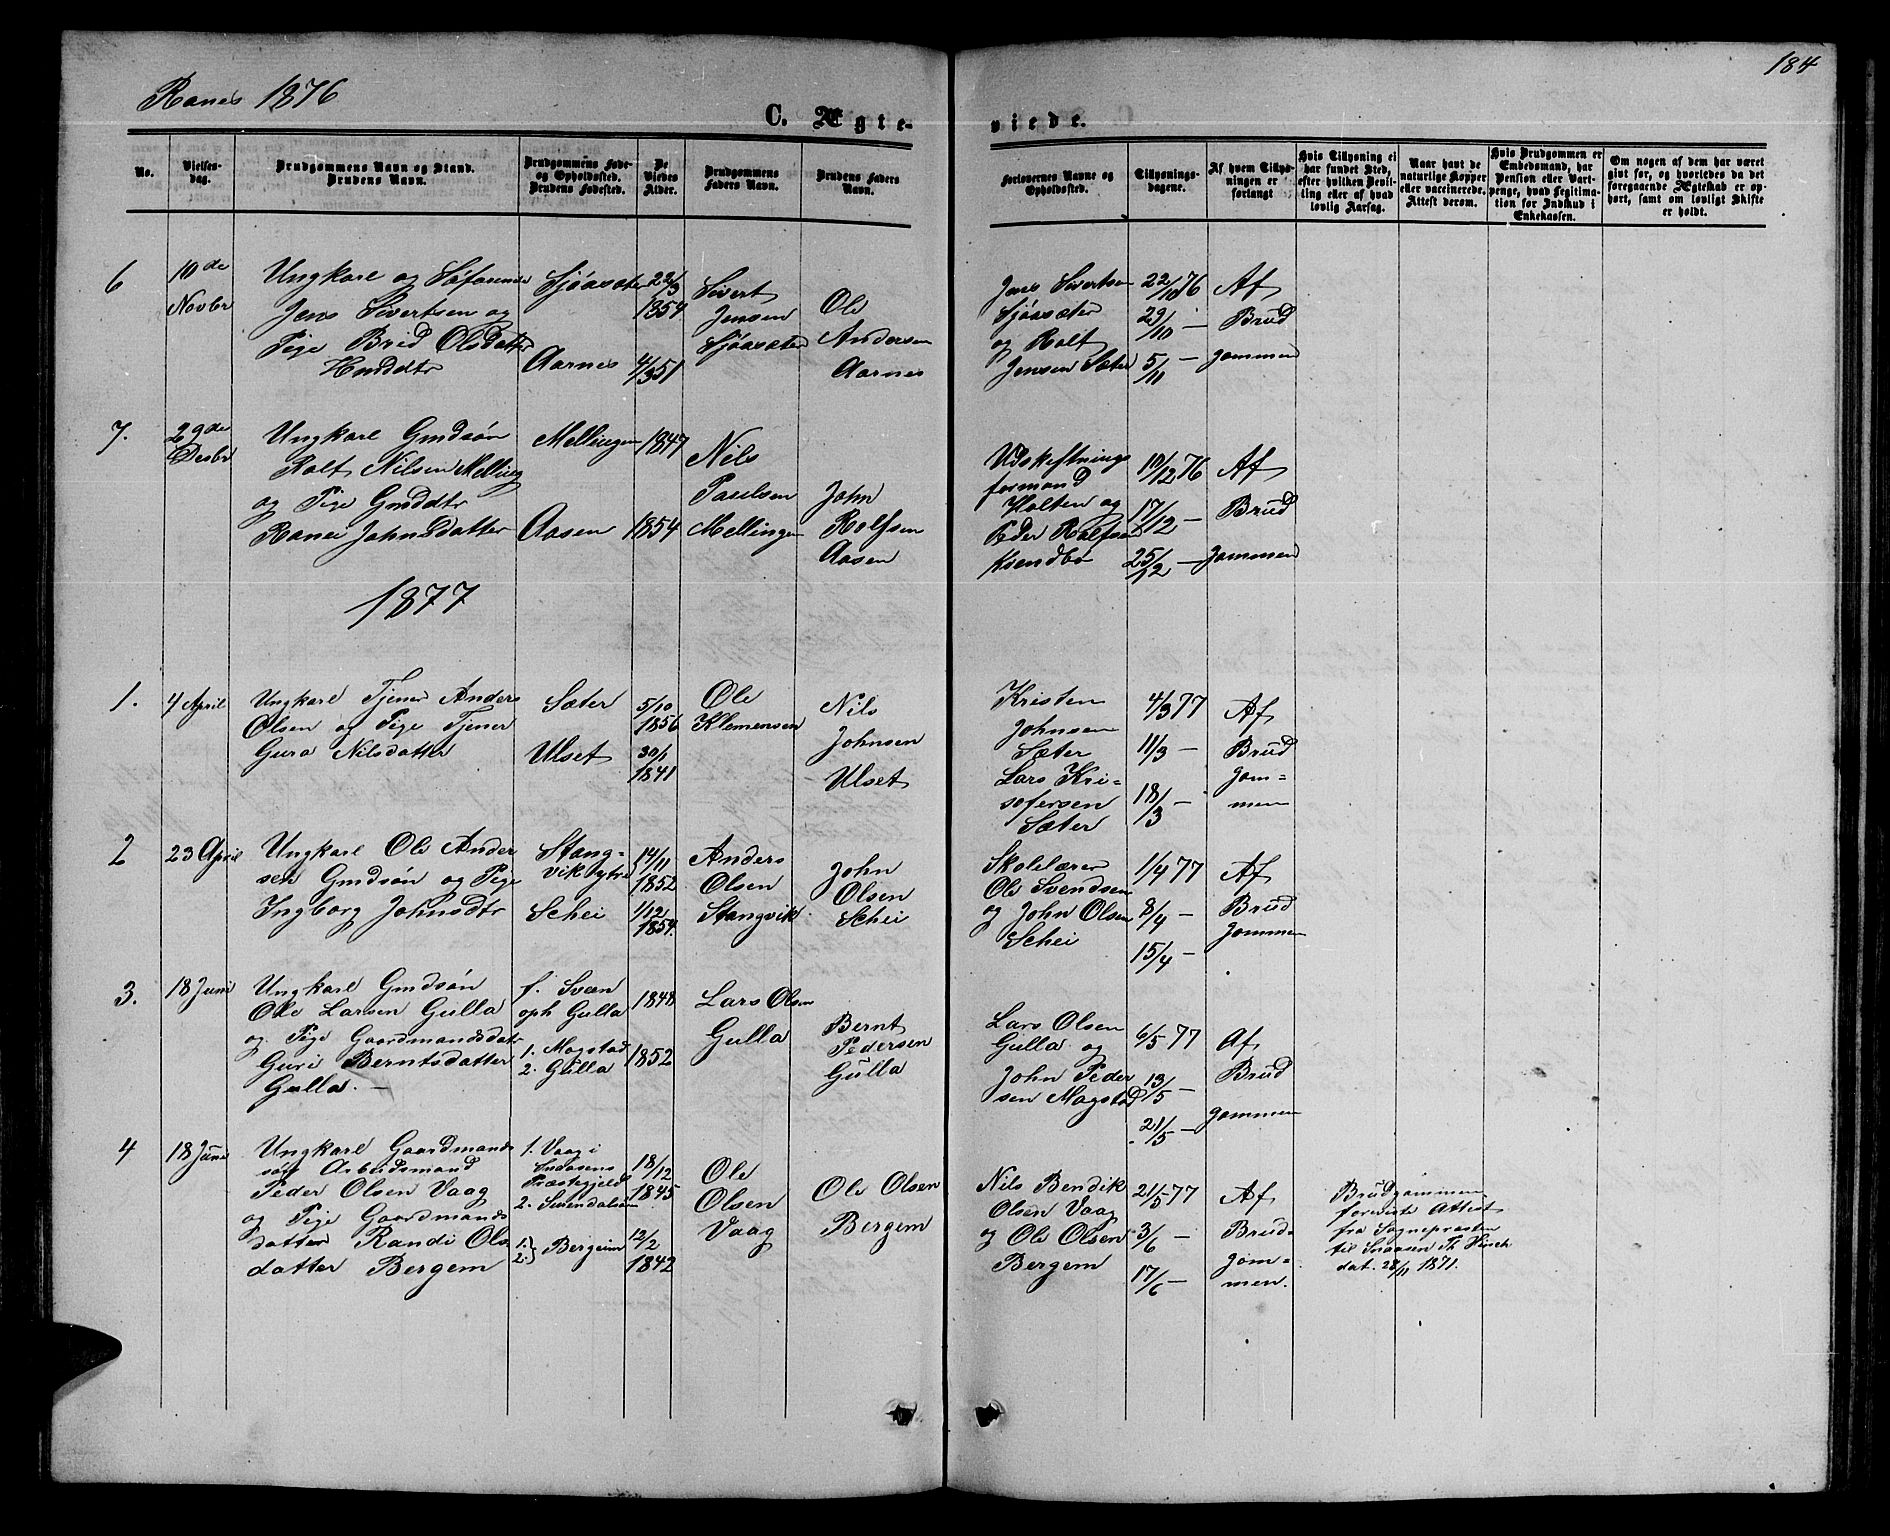 Ranes 1876
184
C. Ægte-
viede.
No.
Vielses-
dag.
Brudgommens Navn og Stand.
Brudens Navn.
Brudgommens Føde-
og Opholdssted.
Brudens Fødested.
De
Viedes
Alder.
Brudgommens
Faders Navn.
Brudens Faders
Navn.
Forlovernes Navne og
Opholdssted.
Tillysnings-
dagene.
Af hvem Tillys-
ningen er
forlangt
Hvis Tillysning ei
har fundet Sted,
efter hvilken Bevil-
ling eller af hvad
lovlig Aarsag.
Naar havt de
naturlige Kopper
eller vaccinerede.
Attest derom.
Hvis Brudgommen er
Embedsmand, har
Pension eller Vart-
penge, hvad Legitima-
tion for Indskud i
Enkekassen.
Om nogen af dem har været
gift før, og hvorledes da det
foregaaende Ægteskab er op-
hørt, samt om lovligt Skifte
er holdt.
6
10de
Novbr
Ungkarl og
Jens Sivertsen og
Pige Brid Olsdatter
Sjøasæter
Aarnes
22/3
1854
4/3 51
Sivert
Jensen
Sjøasæter
Ole
Andersen
Aarnes
Jens Sivertsen
Sjøasæter
og Rolf
Jensen Sæter
22/10 76
29/10 —
5/11 —
Af
Brud
gommen
7.
29de
Desbr
Ungkarl Gmdsøn
Rolf Nilsen Melling
og Pige Gmddtr
Ranei Johnsdatter
Mellingen
Aasen
1847
1854
Nils
Paulsen
Mellingen
John
Rolfsen
Aasen
Udskiftnings
formand
Holten og
Peder Rolfsen
Kvendbø
10/12 76
17/12 —
25/12 —
Af
Brud
gommen
1877
1.
4 April
Ungkarl Tjener Anders
Olsen og Pige Tjener
Guro Nilsdatter
Sæter
Ulset
5/10
1856
30/1
1841
Ole
Klemensen
Nils
Johnsen
Ulset
Kristen
Johnsen
Sæter
Lars Kri=
sofersen
Sæter
4/3 77
11/3 —
18/3 —
Af
Brud
gom=
men
2
23 April
Ungkarl Ole Ander
sen Gmdsøn og Pige
Ingborg Johnsdtr
Stang=
vik ytre
Schei
14/11
1852
1/12
1854.
Anders
Olsen
Stangvik
John
Olsen
Schei
Skolelærer
Ole Svendsen
og John Olsen
Schei
1/4 77
8/4 —
15/4 —
Af
Brud
gommen
3.
18 Juni
Ungkarl Gmdsøn
Ole Larsen Gulla
og Pige Gaardmandsdatr
Guri Berntsdatter
Gulla. —
f. Svæn
oph Gulla
1. Mogstad
2. Gulla
1848
1852
Lars Olsen
Gulla
Bernt
Pedersen
Gulla
Lars Olsen
Gulla og
John Peder
sen Mogstad
6/5 77
13/5 —
21/5 —
Af
Brud
gommen
4
18 Juni
Ungkarl Gaardmands
søn Arbeidsmand
Peder Olsen Vaag
og Pige Gaardmands
datter Randi Ols
datter Bergem
1. Vaag i
Præstegjeld
2. Surendalsøren
1.) 2.) Bergeim
18/12
1845
12/2
1842
Ole
Olsen
Vaag
Ole Olsen
Bergem
Nils Bendik
Olsen Vaag
og Ole Olsen
Bergem
21/5 77
3/6 —
17/6 —
Af
Brud
gom=
men.
Brudgommen
foreviste Attest
fra Sognepræsten
til Snaasen Th. Hirsch
dat. 28/11 1871.